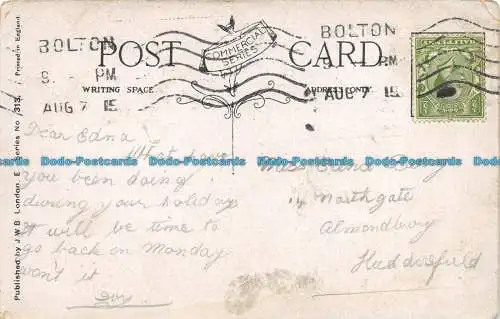 BOLTON
9. PM
AUG 7 15
BOLTON
9. PM
AUG 7 15
POST CARD.
COMMERCIAL
SERIES
WRITING SPACE
ADDRESS ONLY.
Printed in England.
Published by J W B London, E Series No. 313.
Dodo-Postcards Dodo-Postcards Dodo-Postcards Dodo-Postcards Dodo-Postcards
Dear Edna
What have
you been doing
during your holidays
it will be time to
go back on Monday
won't it
Miss Edna
14 Northgate
Almondbury
Huddersfield